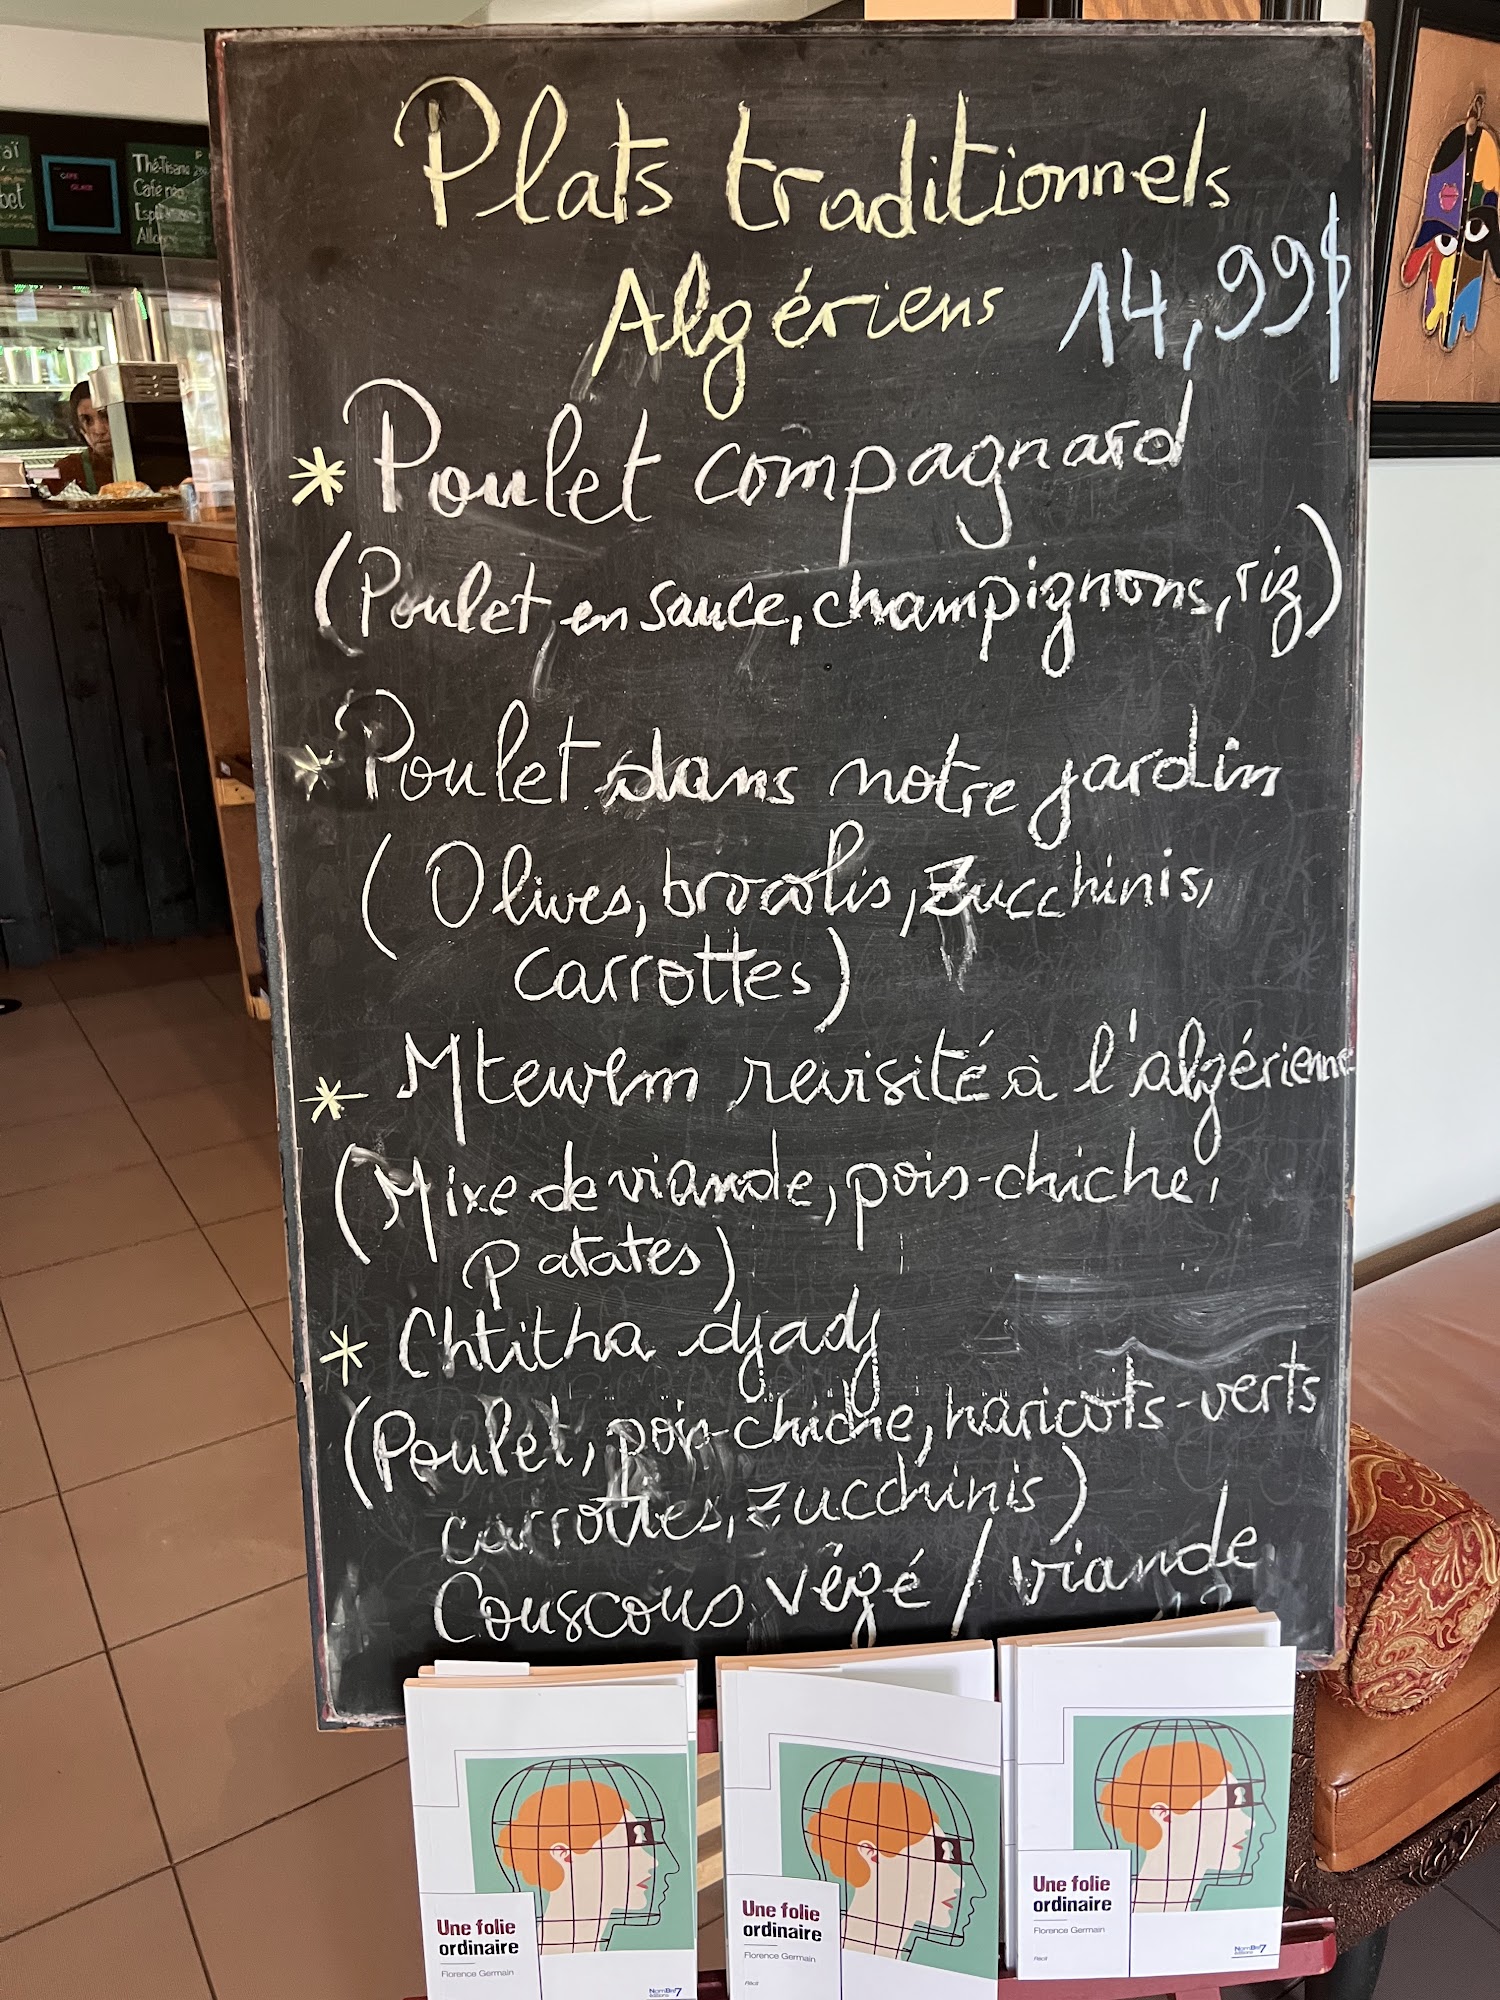 Plats traditionnels
Algériens 14,99$
* Poulet compagnard
(Poulet en sauce, champignons, riz)
* Poulet dans notre jardin
(Olives, brocolis, zucchinis,
carrottes)
* Mtewem revisité à l'algérienne
(Mixe de viande, pois-chiche,
patates)
* Chtitha djadj
(Poulet, pois-chiche, haricots-verts
carrottes, zucchinis)
Couscous végé / viande
Thé-Tisane
Café
Une folie
ordinaire
Florence Germain
NomBre7
éditions
Une folie
ordinaire
Florence Germain
Récit
Une folie
ordinaire
Florence Germain
Récit
NomBre7
éditions